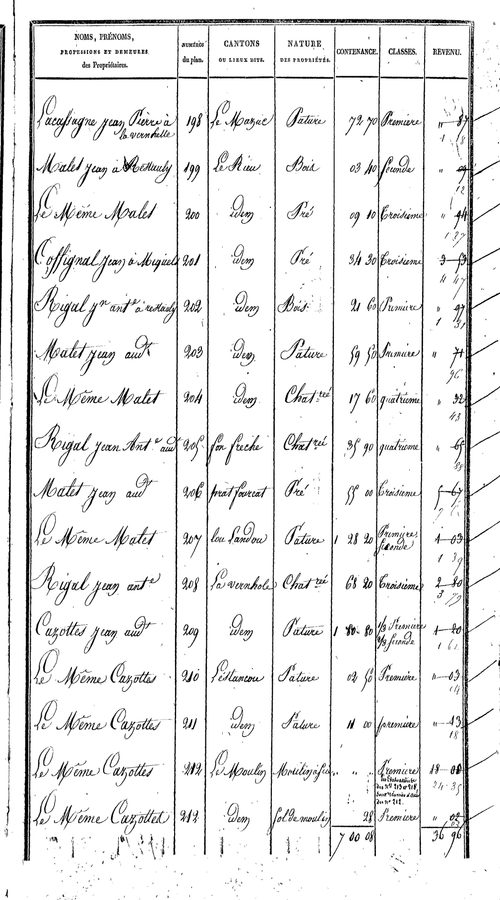 NOMS, PRÉNOMS, PROFESSIONS ET DEMEURES des Propriétaires. NUMÉROS du plan. CANTONS OU LIEUX DITS. NATURE DES PROPRIÉTÉS. CONTENANCE. CLASSES. REVENU.
Lacassagne jean Pierre à la vernholle 198 Le Mazuc Pature 72 70 Première " 87
Malet jean à Restauly 199 Le Rieu Bois 03 40 seconde " 09
12
Le Même Malet 200 idem Pré 09 10 Troisieme " 94
1 27
Coffignal jean à Miquels 201 idem Pré 34 30 Troisieme 3 53
4 47
Rigal jn antne à restauly 202 idem Bois 21 60 Premiere " 97
1 31
Malet jean audt 203 idem Pature 59 50 Premiere " 71
96
Le Même Malet 204 idem Chatrée 17 60 quatrieme " 32
43
Rigal jean Ante audt 205 fon freche Chatrée 35 90 quatrieme " 65
88
Malet jean audt 206 prat fourcat Pré 55 00 Troisieme 5 67
Le Même Malet 207 lou Landou Pature 1 28 20 Premiere, seconde 1 03
1 39
Rigal jean ante 208 La vernhole Chatrée 68 20 Troisieme 2 80
3 79
Cazottes jean audt 209 idem Pature 1 80 80 1/3 Premiere 2/3 seconde 1 20
1 62
Le Même Cazottes 210 Lestancou Pature 02 50 Première " 03
04
Le Même Cazottes 211 idem Pature 11 00 première " 13
18
Le Même Cazottes 212 Le Moulin Moulin à eau " " Premiere 18 00
24 35
Le Même Cazottes 212 idem sol de moulin 28 Premiere " 02
7 00 08 36 96